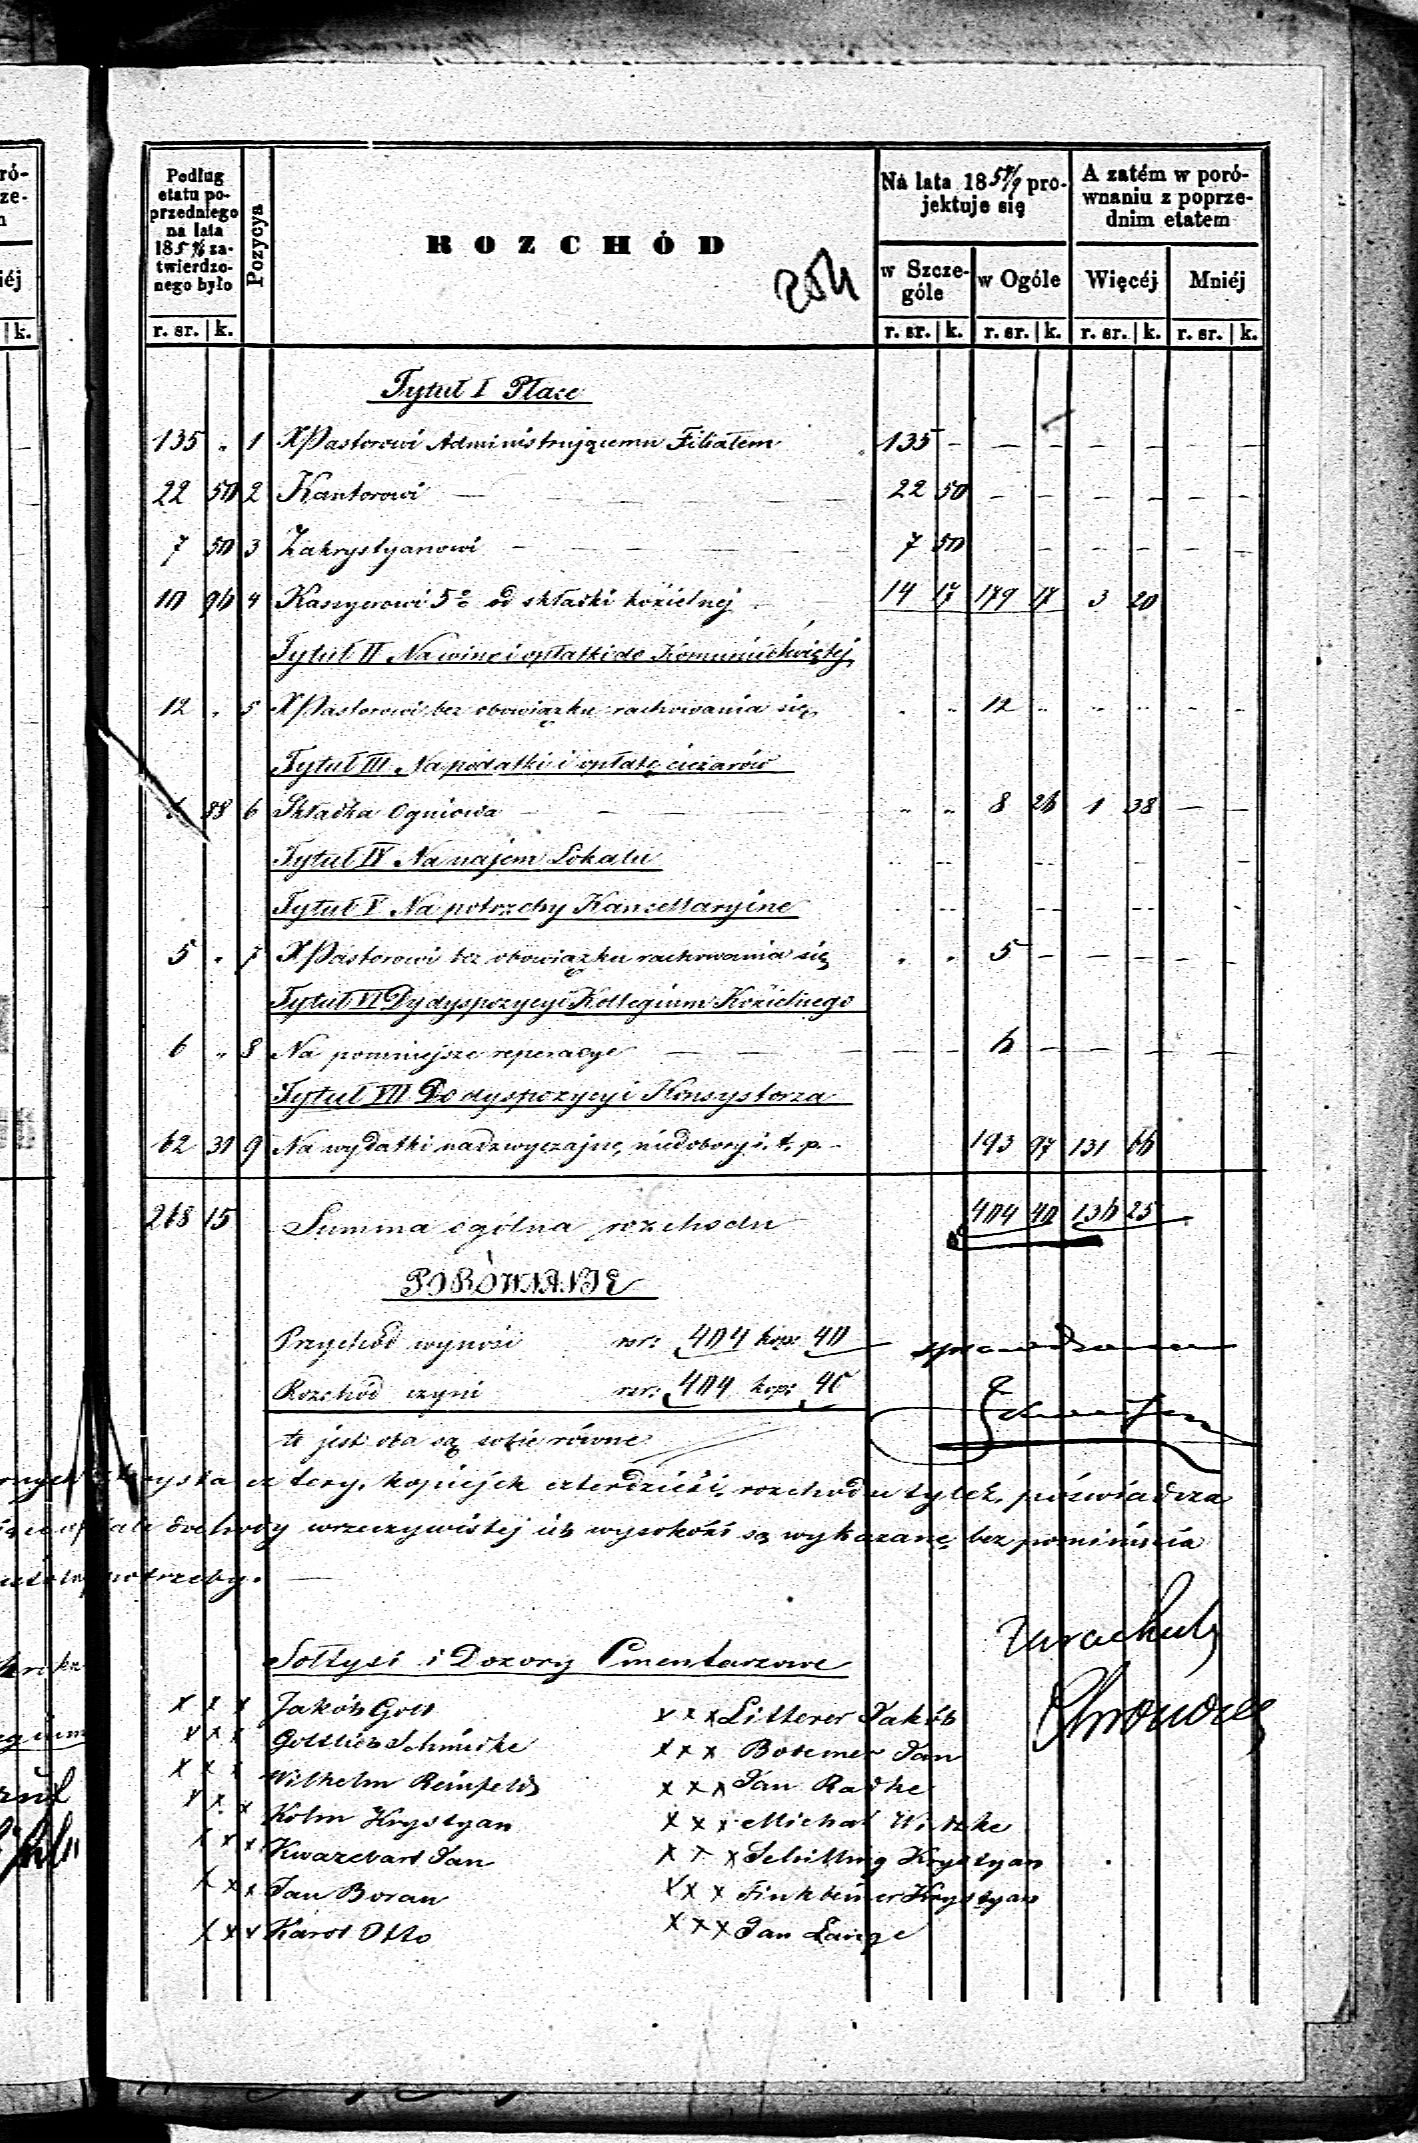 Podług etatu poprzedniego na lata 185 zatwierdzonego było
Pozycya
ROZCHÓD
254
Na lata 185 pro-
jektuje się
w Szcze-
góle
w Ogóle
A zatém w poró-
wnaniu z poprze-
dnim etatem
Więcéj
Mniéj
r. sr. k. r. sr. k. r. sr. k. r. sr. k. r. sr. k.
Tytuł I Płace
135 „ 1 XPastorowi Administrującemu Filiałem 135 –
22 50 2 Kantorowi 22 50
7 50 3 Zakrystyanowi 7 50
10 96 4 Kassyerowi 5% od składki kościelnej 14 17 179 17 3 20
Tytuł II Na wino i opłatki do Kommunii Świętej
12 „ 5 XPastorowi bez obowiązku rachowania się 12
Tytuł III Na podatki i opłatę ciężarów
88 6 Składka Ogniowa 8 26 1 38
Tytuł IV Na najem Lokalu
Tytuł V Na potrzeby Kancellaryine
5 „ 7 XPastorowi bez obowiązku rachowania się 5
Tytuł VI Dy dyspozycyi Kollegium Kościelnego
6 „ 8 Na pomniejsze reperacye 6
Tytuł VII Do dyspozycyi Konsystorza
62 31 9 Na wydatki nadzwyczajne, niedobory i. t. p. 193 97 131 66
268 15 Summa ogólna rozchodu 404 40 136 25
PORÓWNANIE
Przychód wynosi rsr: 404 kop: 40
Rozchód czyni rsr: 404 kop: 40
to jest oba są sobie równe
sprawdzono
cztery, kopiejek czterdzieści, rozchodu tyleż, poświadcza
dochody w rzeczywistej ich wysokości są wykazane, bez pominięcia
potrzeby.
Sołtysi i Dozory Cmentarzowe
x x x Jakób Gott
x x x Gottlieb Schmidke
x x x Wilhelm Reinfeld
x x x Kolm Krystyan
x x x Kwazebart Jan
x x x Jan Boran
x x x Karol Otto
x x x Litterer Jakób
x x x Botemer Jan
x x x Jan Radke
x x x Michał Witzke
x x x Schilling Krystyan
x x x Finkbeiner Krystyan
x x x Jan Lange